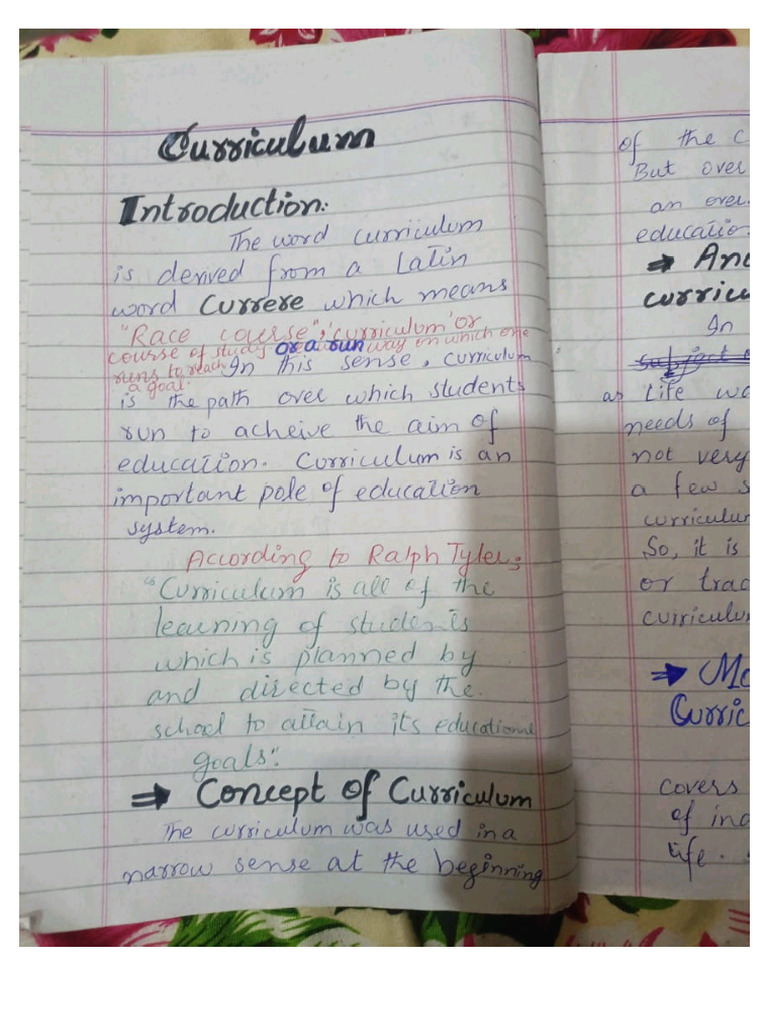 Curriculum
Introduction:
The word curriculum
is derived from a Latin
word Currere which means
"Race course", 'curriculum' or
course of study or a run way on which one
runs to reach
a goal.
In this sense, curriculum
is the path over which students
run to acheive the aim of
education. Curriculum is an
important pole of education
system.
According to Ralph Tyler;
"Curriculum is all of the
learning of students
which is planned by
and directed by the
school to attain its educational
goals".
⇒ Concept of Curriculum
The curriculum was used in a
narrow sense at the beginning
of the c
But over
an over
educatio
⇒ Anc
curricu
In
as Life wo
needs of
not very
a few s
curriculu
So, it is
or trad
curriculu
⇒ Mo
Curric
covers
of ind
life.